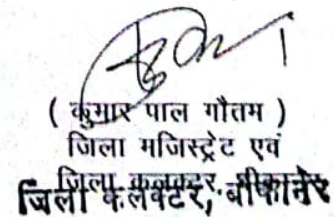 ( कुमार पाल गौतम )
जिला मजिस्ट्रेट एवं
जिला कलक्टर, बीकानेर
जिला कलेक्टर, बीकानेर